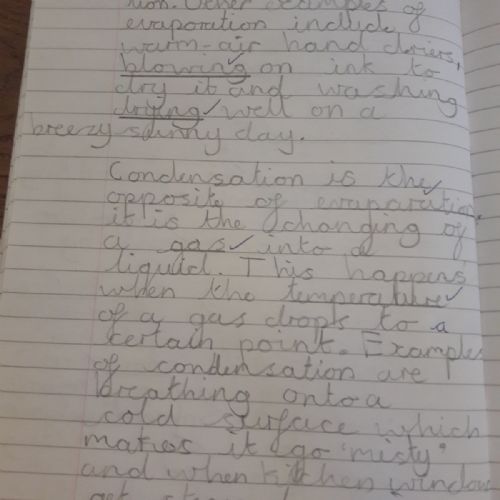 tion. Other examples of
evaporation include
warm-air hand driers,
blowing on ink to
dry it and washing
drying well on a
breezy sunny day.
Condensation is the
opposite of evaporation,
it is the changing of
a gas into a
liquid. This happens
when the temperature
of a gas drops to a
certain point. Examples
of condensation are
breathing onto a
cold surface which
makes it go 'misty'
and when kitchen windows
get